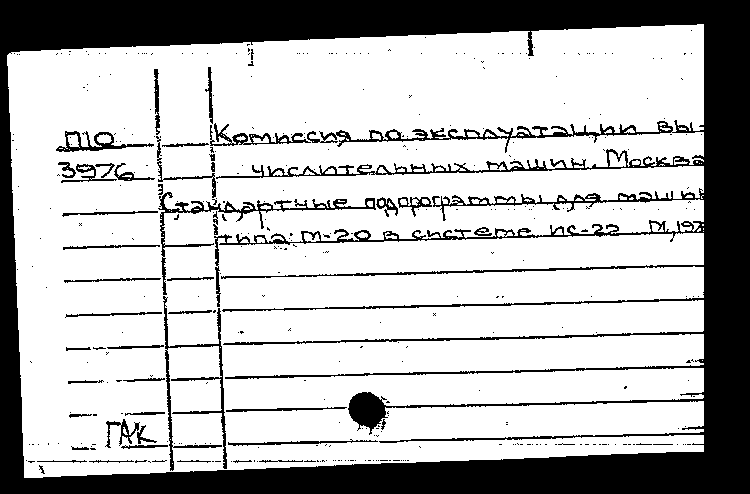 П10 Комиссия по эксплуатации вы-
3976 числительных машин. Москва
Стандартные подпрограммы для машин
типа М-20 в системе ис-22 М,
ГАК